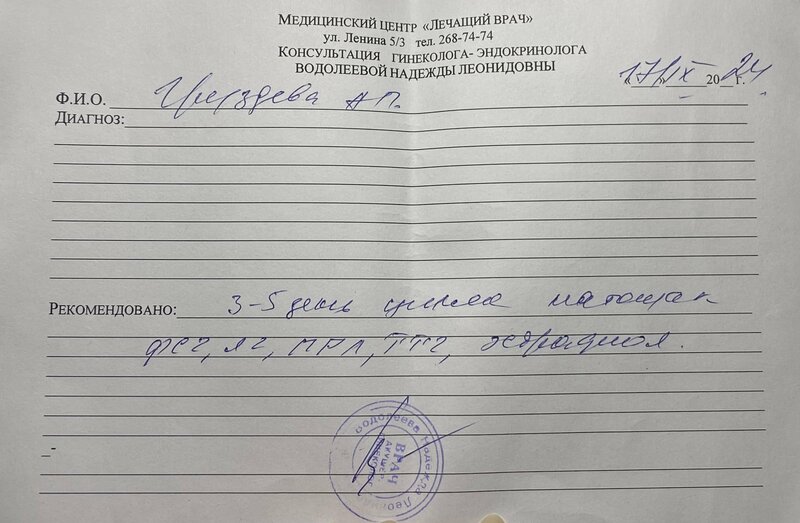 Медицинский центр «Лечащий врач»
ул. Ленина 5/3 тел. 268-74-74
Консультация гинеколога- эндокринолога
Водолеевой Надежды Леонидовны
«17» IX 2024 г.
Ф.И.О. Груздева А П.
Диагноз:
Рекомендовано: 3-5 день цикла натощак
ФСГ, ЛГ, ПРЛ, ТТГ, эстрадиол.
Водолеева Надежда Леонид
ВРАЧ
АКУШЕР-
ГИНЕКОЛОГ